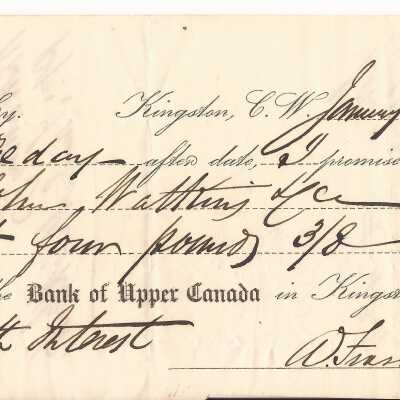 y. Kingston, C. W. January
day after date, I promise
John Watkins & Co
four pounds 3/8
the Bank of Upper Canada in Kingst
th Interest
A. Fras